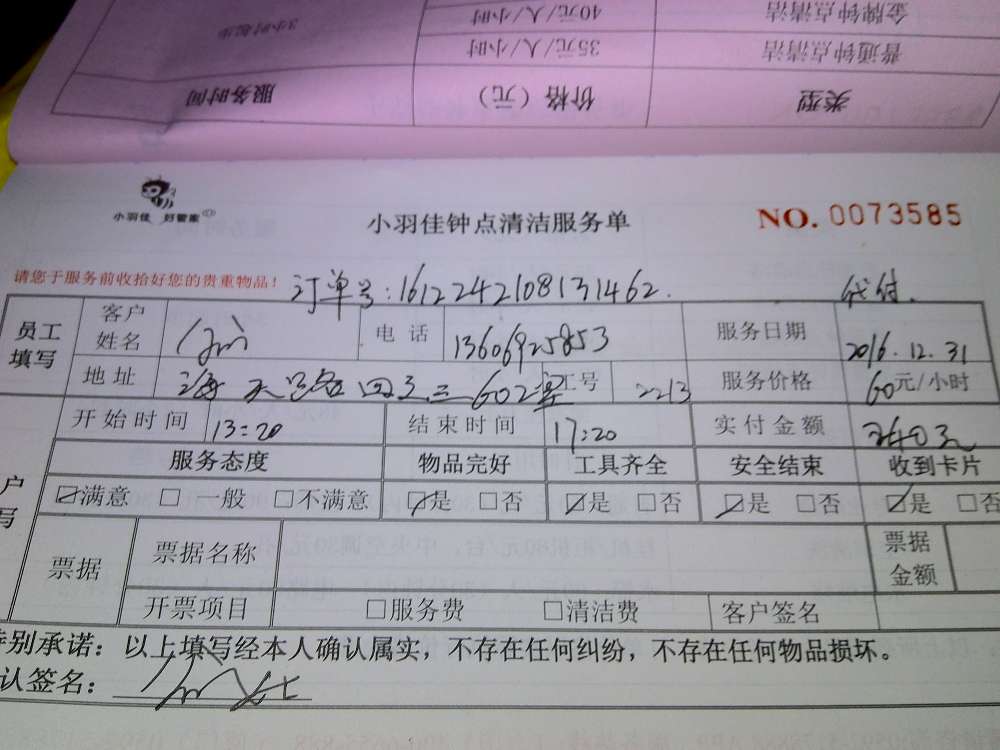 3小时起步
40元/人/小时
金牌钟点清洁
35元/人/小时
普通钟点清洁
服务时间
价格（元）
类型
小羽佳 好管家
小羽佳钟点清洁服务单
NO. 0073585
请您于服务前收拾好您的贵重物品！
订单号：1612242108131462.
代付.
员工填写
客户姓名
电话 13606925853
服务日期 2016.12.31
地址 海天路四之三602室
工号 2213
服务价格 60元/小时
开始时间 13:20
结束时间 17:20
实付金额 240元
户
写
服务态度 物品完好 工具齐全 安全结束 收到卡片
☑满意 □一般 □不满意 ☑是 □否 ☑是 □否 ☑是 □否 ☑是 □否
票据
票据名称
票据金额
开票项目 □服务费 □清洁费 客户签名
特别承诺：以上填写经本人确认属实，不存在任何纠纷，不存在任何物品损坏。
认签名：